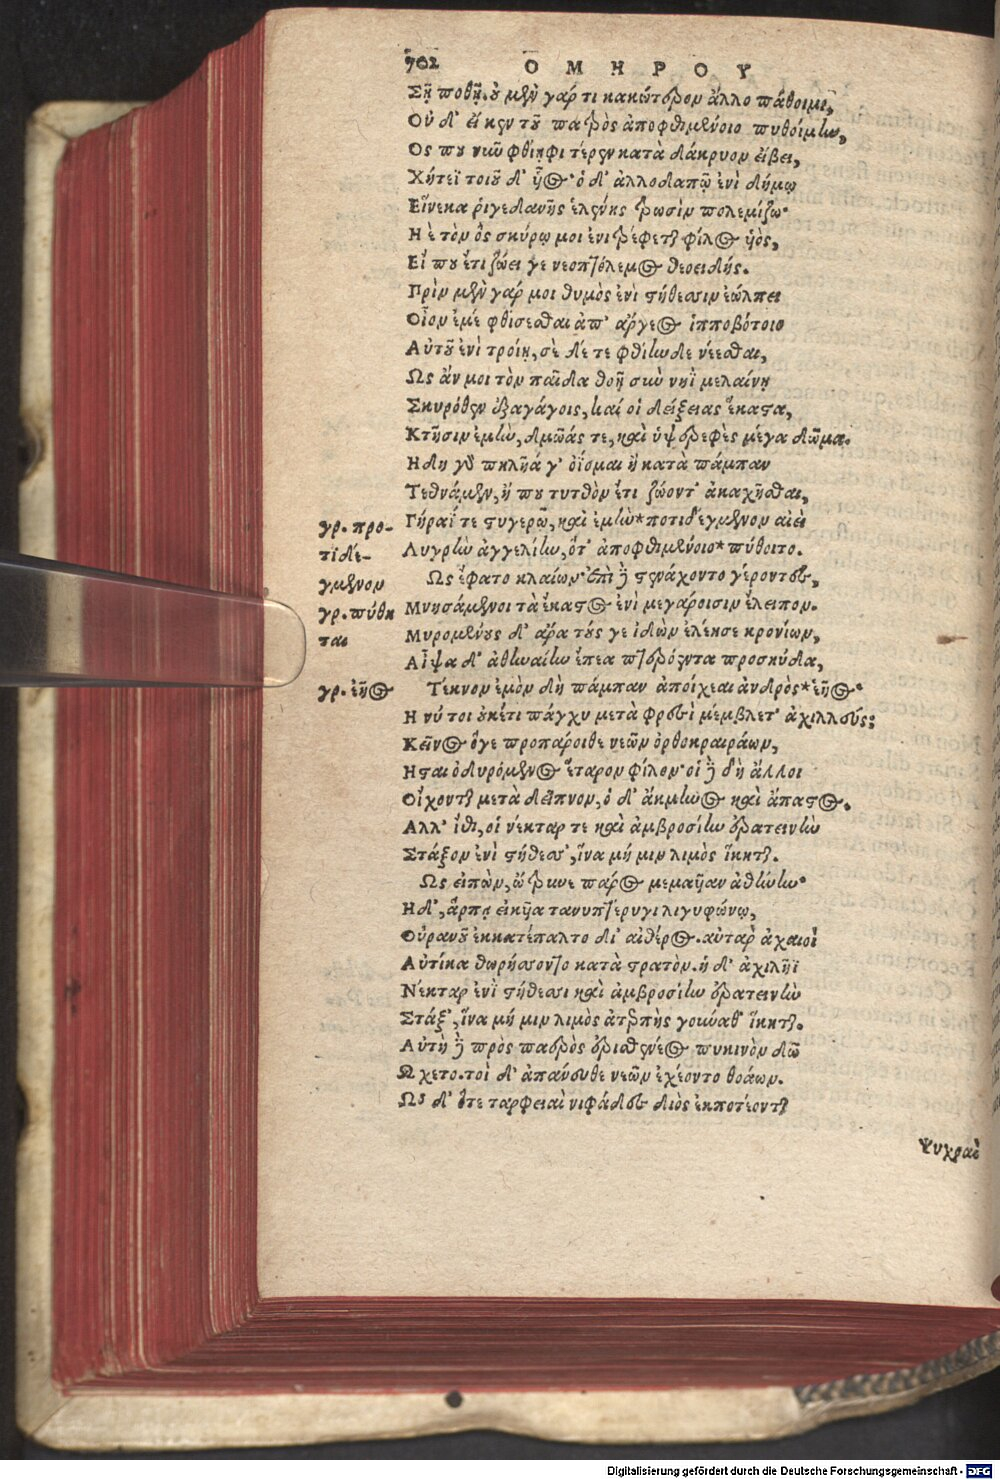 702 ΟΜΗΡΟΥ
Σῇ ποθῇ. οὐ μὲν γάρ τι κακώτερον ἄλλο πάθοιμι,
Οὐδ' εἴ κεν τοῦ πατρὸς ἀποφθιμένοιο πυθοίμην,
Ος που νῦν φθίηφι τέρεν κατὰ δάκρυον εἴβει,
Χήτεϊ τοιοῦ δ' ὗος· ὁ δ' ἀλλοδαπῷ ἐνὶ δήμῳ
Εἵνεκα ῥιγεδανῆς ἑλένης τρωσὶν πολεμίζω·
Η ὲ τὸν ὃς σκύρῳ μοι ἐνιτρέφεται φίλος ὑὸς,
Εἴ που ἔτι ζώει γε νεοπτόλεμος θεοειδής.
Πρὶν μὲν γάρ μοι θυμὸς ἐνὶ στήθεσσιν ἐώλπει
Οἶον ἐμέ φθίσεσθαι ἀπ' ἄργεος ἱπποβότοιο
Αὐτοῦ ἐνὶ τροίῃ, σὲ δέ τε φθίην δε νέεσθαι,
Ως ἄν μοι τὸν παῖδα θοῇ σὺν νηῒ μελαίνῃ
Σκυρόθεν ἐξαγάγοις, καί οἱ δείξειας ἕκαστα,
Κτῆσιν ἐμὴν, δμῶάς τε, καὶ ὑψερεφὲς μέγα δῶμα.
Ηδη γὰρ πηλῆά γ' ὀΐομαι ἢ κατὰ πάμπαν
Τεθνάμεν, ἤ που τυτθὸν ἔτι ζώοντ' ἀκαχῆσθαι,
γρ. προ- Γήραΐ τε στυγερῷ, καὶ ἐμὴν* ποτιδεγμενον αἰεὶ
τιδέ- Λυγρὴν ἀγγελίην, ὅτ' ἀποφθιμένοιο* πύθοιτο.
γμενον Ως ἔφατο κλαίων· ἐπὶ δὲ στενάχοντο γέροντες,
γρ. πύθη Μνησάμενοι τὰ ἕκαστος ἐνὶ μεγάροισιν ἔλειπον.
ται Μυρομένους δ' ἄρα τούς γε ἰδὼν ἐλέησε κρονίων,
Αἶψα δ' ἀθηναίην ἔπεα πτερόεντα προσηύδα,
γρ. ἐῆος Τέκνον ἐμὸν δὴ πάμπαν ἀποίχεαι ἀνδρὸς* ἑῆος·
Η νύ τοι οὐκέτι πάγχυ μετὰ φρεσὶ μέμβλετ' ἀχιλλεύς;
Κεῖνος ὅγε προπάροιθε νεῶν ὀρθοκραιράων,
Ησται ὀδυρόμενος ἕταρον φίλον· οἱ δὲ δὴ ἄλλοι
Οἴχονται μετὰ δεῖπνον, ὁ δ' ἄκμηνος καὶ ἄπαστος.
Αλλ' ἴθι, οἱ νέκταρ τε καὶ ἀμβροσίην ἐρατεινὴν
Στάξον ἐνὶ στήθεσσ', ἵνα μή μιν λιμὸς ἵκηται.
Ως εἰπὼν, ὤτρυνε πάρος μεμαῦαν ἀθήνην·
Ηδ', ἅρπῃ εἰκῦα τανυπτέρυγι λιγυφώνῳ,
Οὐρανοῦ ἐκκατέπαλτο δι' αἰθέρος. αὐτὰρ ἀχαιοὶ
Αὐτίκα θωρήσσοντο κατὰ στρατόν. ἡ δ' ἀχιλῆϊ
Νέκταρ ἐνὶ στήθεσσι καὶ ἀμβροσίην ἐρατεινὴν
Στάξ', ἵνα μή μιν λιμὸς ἀτερπὴς γούναθ' ἵκηται.
Αὐτὴ δὲ πρὸς πατρὸς ἐρισθενέος πυκινὸν δῶ
Ω χετο. τοὶ δ' ἀπάνευθε νεῶν ἐχέοντο θοάων.
Ως δ' ὅτε ταρφειαὶ νιφάδες διὸς ἐκποτέονται
Ψυχραὶ
Digitalisierung gefördert durch die Deutsche Forschungsgemeinschaft - DFG